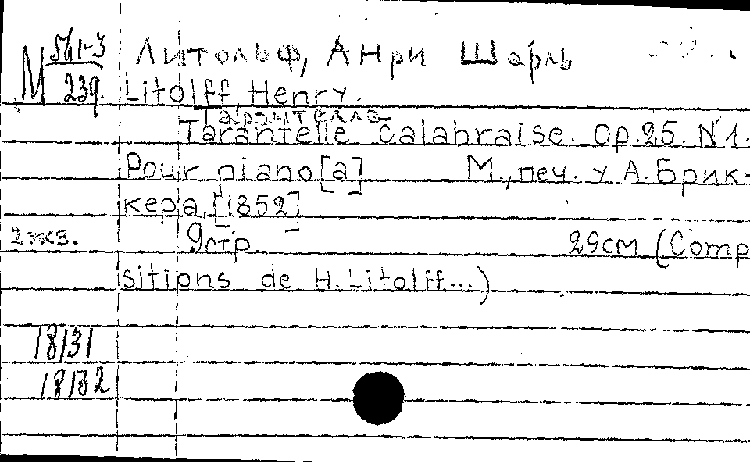 М 561-3 Литольф, Анри Шарль
239 Litolff Henry.
Тарантелла
Tarantelle calabraise. Op.25. N1.
Pour piano[a] М., печ. у А. Брик-
кера, [1852]
2 экз. 9стр. 29см (Compo
sitions de H. Litolff...)
18131
18132